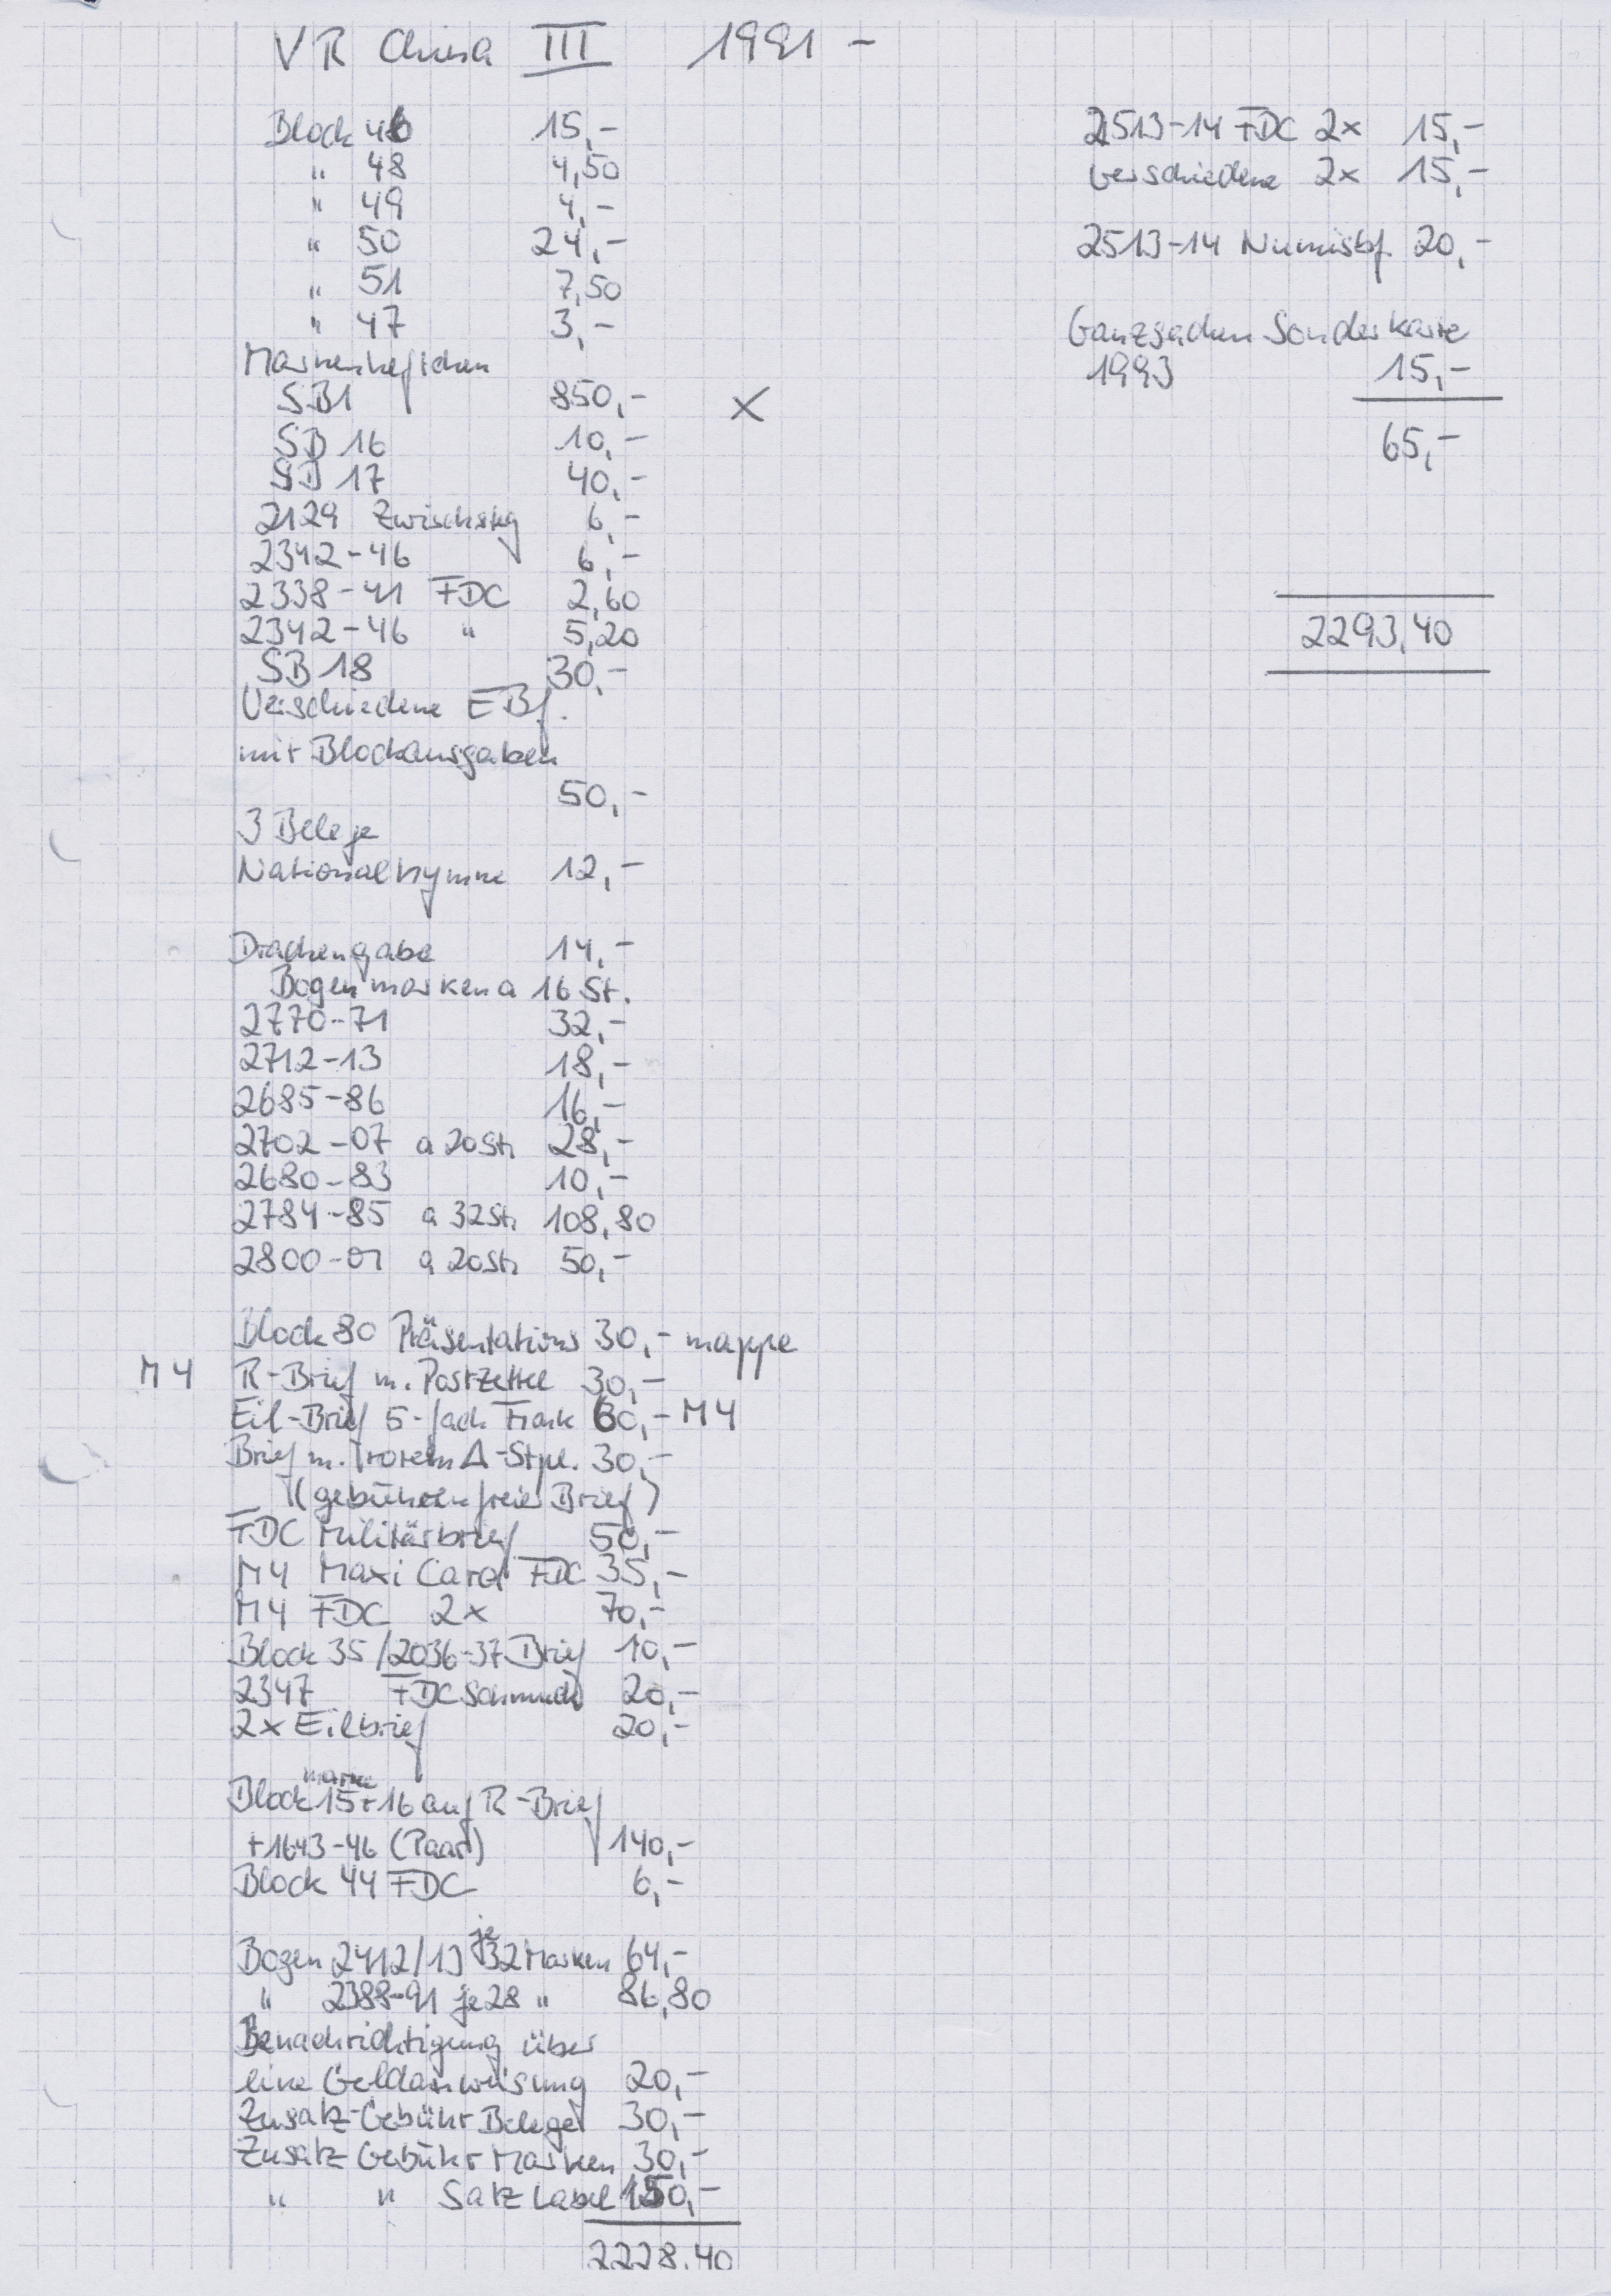 VR China III 1991 -
Block 46 15,-
" 48 4,50
" 49 4,-
" 50 24,-
" 51 7,50
" 47 3,-
Markenheftchen
SB1 850,- X
SB 16 10,-
SB 17 40,-
2129 Zwischstg 6,-
2342-46 6,-
2338-41 FDC 2,60
2342-46 " 5,20
SB 18 30,-
Verschiedene EBf.
mit Blockausgaben
50,-
3 Belege
Nationalhymne 12,-
Drachengabe 14,-
Bogenmarken a 16 St.
2770-71 32,-
2712-13 18,-
2685-86 16,-
2702-07 a 20St. 28,-
2680-83 10,-
2784-85 a 32St. 108,80
2800-01 a 20St. 50,-
Block 80 Präsentations 30,- mappe
M4 R-Brief m. Postzettel 30,-
Eil-Brief 5-fach Frank 60,- M4
Brief m. rotem Δ-Stpl. 30,-
(gebührenfreier Brief)
FDC Militärbrief 50,-
M4 Maxi Card FDC 35,-
M4 FDC 2x 70,-
Block 35/2036-37 Brief 10,-
2347 FDC Schmuck 20,-
2x Eilbrief 20,-
marke
Block 15+16 auf R-Brief
+1643-46 (Paar) 140,-
Block 44 FDC 6,-
Bogen 2412/13 je 32 Marken 64,-
" 2388-91 je 28 " 86,80
Benachrichtigung über
eine Geldanweisung 20,-
Zusatz-Gebühr Belege 30,-
Zusatz Gebühr Marken 30,-
" " Satz Label 150,-
2228.40
2513-14 FDC 2x 15,-
verschiedene 2x 15,-
2513-14 Numisbf. 20,-
Ganzsachen Sonderkarte
1993 15,-
65,-
2293.40